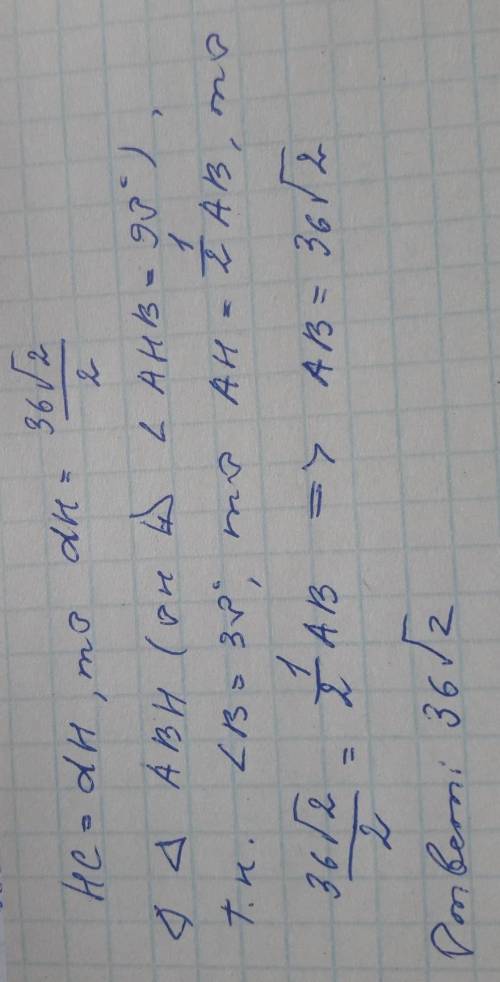 HC = dH, то dH = 36√2/2
△ ABH (он ⊿ ∠AHB = 90°),
т.к. ∠B = 30°, то AH = 1/2 AB, то
36√2/2 = 1/2 AB => AB = 36√2
Ответ: 36√2